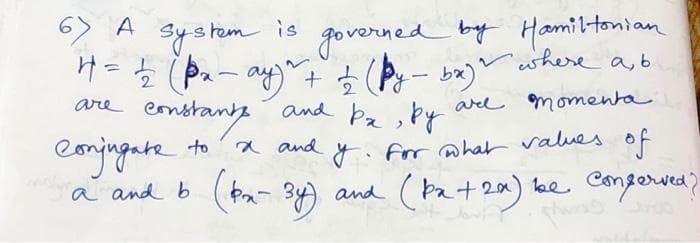 6> A system is governed by Hamiltonian
H = ½ (pₓ - ay)² + ½ (p_y - bx)² where a, b
are constants and pₓ, p_y are momenta
conjugate to x and y. For what values of
a and b (pₓ - 3y) and (pₓ + 2x) be conserved?